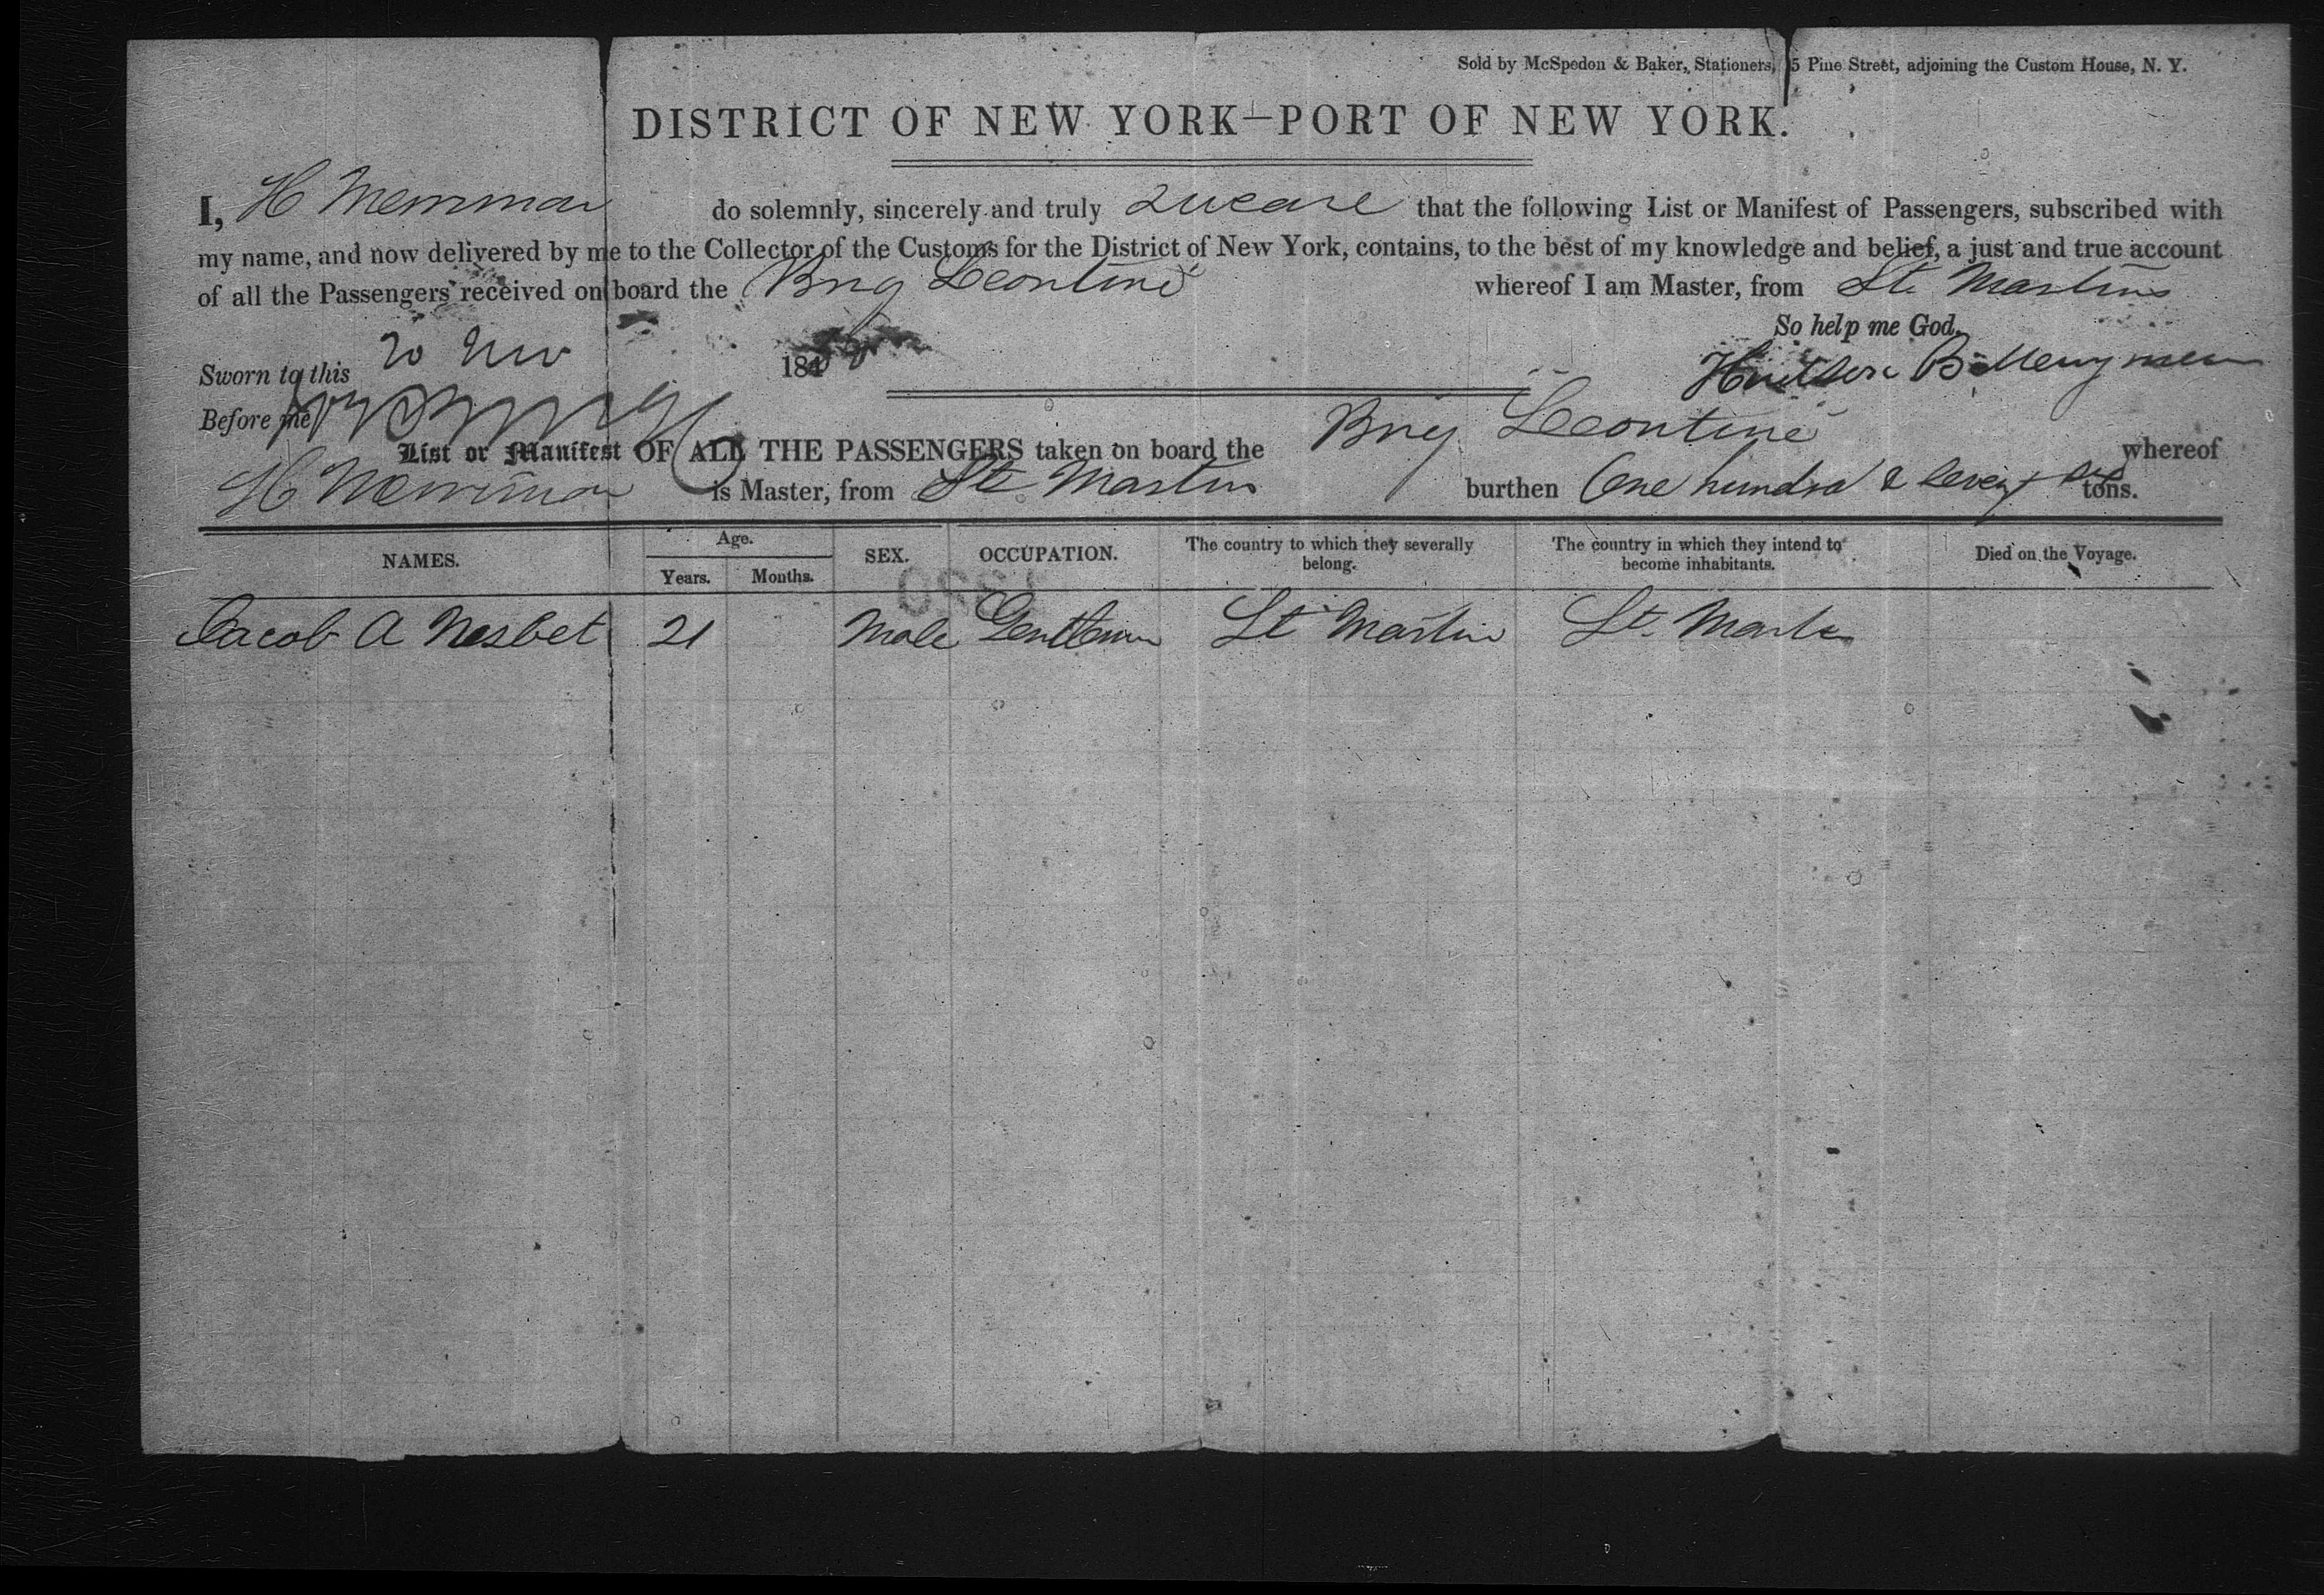 Sold by McSpedon & Baker, Stationers, 5 Pine Street, adjoining the Custom House, N. Y.
DISTRICT OF NEW YORK—PORT OF NEW YORK.
I, H Merriman do solemnly, sincerely and truly swear that the following List or Manifest of Passengers, subscribed with
my name, and now delivered by me to the Collector of the Customs for the District of New York, contains, to the best of my knowledge and belief, a just and true account
of all the Passengers received on board the Brig Leontine whereof I am Master, from St. Martins
So help me God.
Sworn to this 20 Nov 184
B Merryman
Before me
List or Manifest OF ALL THE PASSENGERS taken on board the Brig Leontine whereof
H Merriman is Master, from St. Martin burthen One hundred & seventy six tons.
NAMES. Age. SEX. OCCUPATION. The country to which they severally belong. The country in which they intend to become inhabitants. Died on the Voyage.
Years. Months.
Jacob A Nesbet 21 Male Gentleman St Martin St. Martin